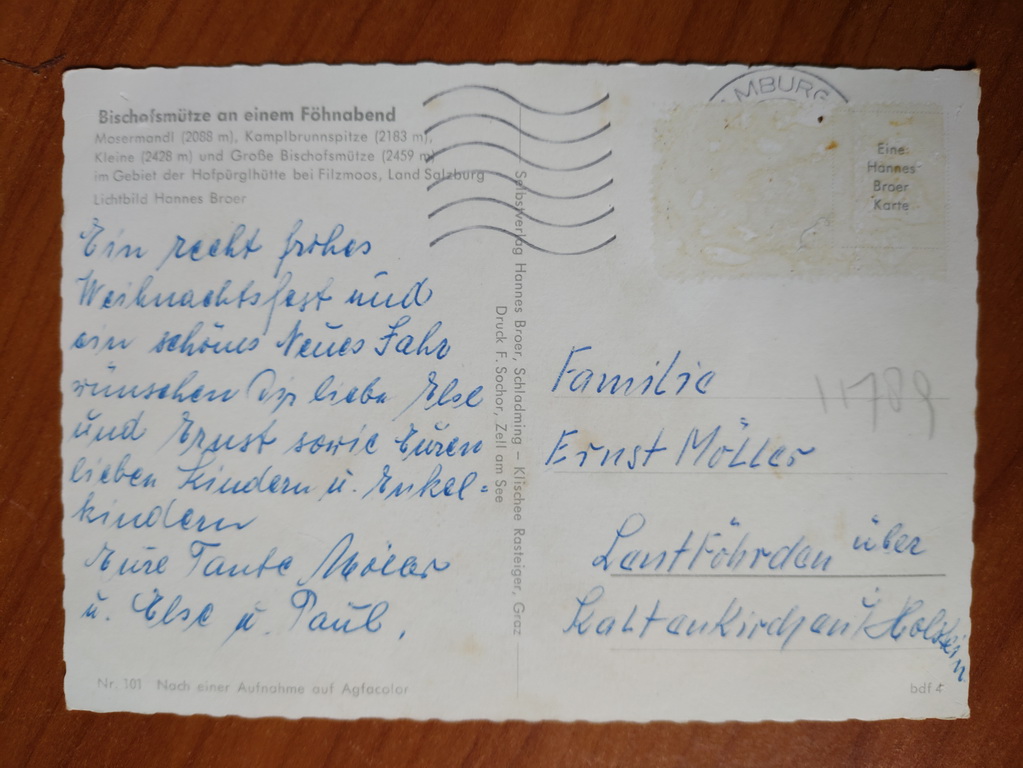 Bischofsmütze an einem Föhnabend
Mosermandl (2088 m), Kamplbrunnspitze (2183 m),
Kleine (2428 m) und Große Bischofsmütze (2459 m)
im Gebiet der Hofpürglhütte bei Filzmoos, Land Salzburg
Lichtbild Hannes Broer
Ein recht frohes
Weihnachtsfest und
ein schönes Neues Jahr
wünschen Dir liebe Else
und Ernst sowie Euren
lieben Kindern u. Enkel=
kindern
Eure Tante Möller
u. Else u. Paul.
Nr. 101 Nach einer Aufnahme auf Agfacolor
Selbstverlag Hannes Broer, Schladming – Klischee Rasteiger, Graz
Druck F. Sochor, Zell am See
MBURG
Eine
Hannes
Broer
Karte
Familie
11789
Ernst Möller
Lentföhrden über
Kaltenkirchen / Holstein
bdf